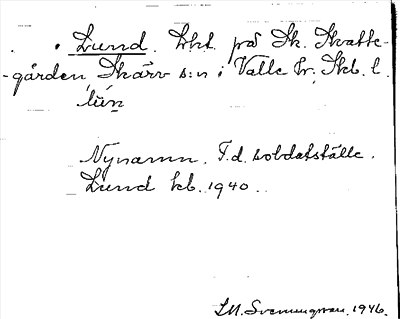 Lund. Lht. på Sk. Skatte-
-gården, Skärv s:n i Valle hr. Skb. l.
lun
Nynamn. F.d. soldatställe.
Lund kb. 1940.
S.M. Svenungsson. 1946.